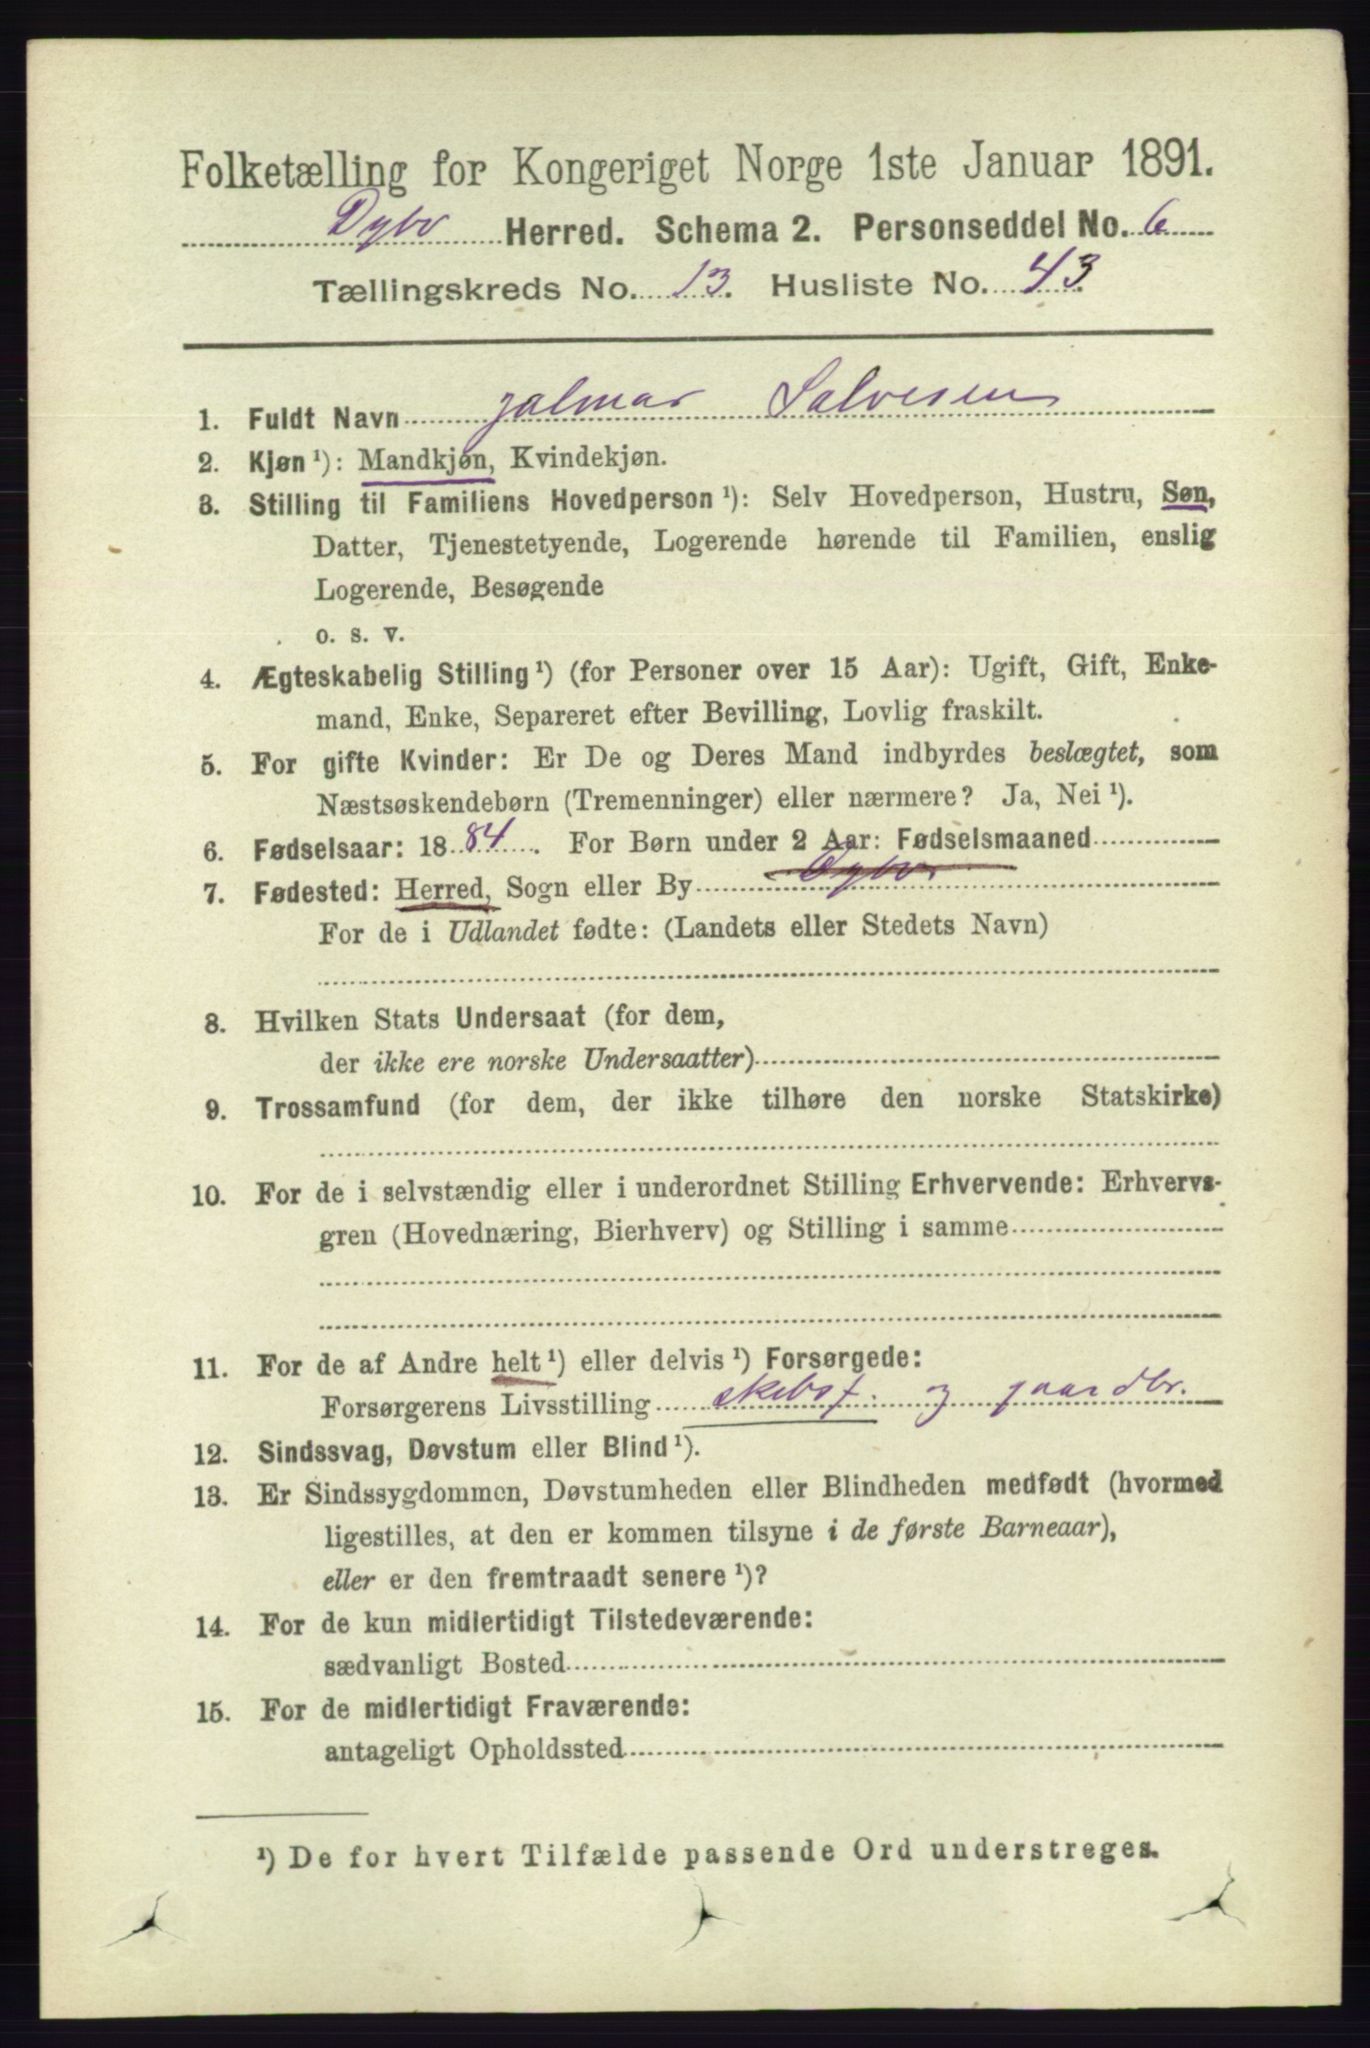 Folketælling for Kongeriget Norge 1ste Januar 1891.
Dybv Herred. Schema 2. Personseddel No. 6
Tællingskreds No. 13. Husliste No. 43
1. Fuldt Navn Jalmar Salvesen
2. Kjøn ¹): Mandkjøn, Kvindekjøn.
3. Stilling til Familiens Hovedperson ¹): Selv Hovedperson, Hustru, Søn,
Datter, Tjenestetyende, Logerende hørende til Familien, enslig
Logerende, Besøgende
o. s. v.
4. Ægteskabelig Stilling ¹) (for Personer over 15 Aar): Ugift, Gift, Enke-
mand, Enke, Separeret efter Bevilling, Lovlig fraskilt.
5. For gifte Kvinder: Er De og Deres Mand indbyrdes beslægtet, som
Næstsøskendebørn (Tremenninger) eller nærmere? Ja, Nei ¹).
6. Fødselsaar: 1884. For Børn under 2 Aar: Fødselsmaaned
7. Fødested: Herred, Sogn eller By Dybv
For de i Udlandet fødte: (Landets eller Stedets Navn)
8. Hvilken Stats Undersaat (for dem,
der ikke ere norske Undersaatter)
9. Trossamfund (for dem, der ikke tilhøre den norske Statskirke)
10. For de i selvstændig eller i underordnet Stilling Erhvervende: Erhvervs-
gren (Hovednæring, Bierhverv) og Stilling i samme
11. For de af Andre helt ¹) eller delvis ¹) Forsørgede:
Forsørgerens Livsstilling skibsf. og gaardbr.
12. Sindssvag, Døvstum eller Blind ¹).
13. Er Sindssygdommen, Døvstumheden eller Blindheden medfødt (hvormed
ligestilles, at den er kommen tilsyne i de første Barneaar),
eller er den fremtraadt senere ¹)?
14. For de kun midlertidigt Tilstedeværende:
sædvanligt Bosted
15. For de midlertidigt Fraværende:
antageligt Opholdssted
¹) De for hvert Tilfælde passende Ord understreges.